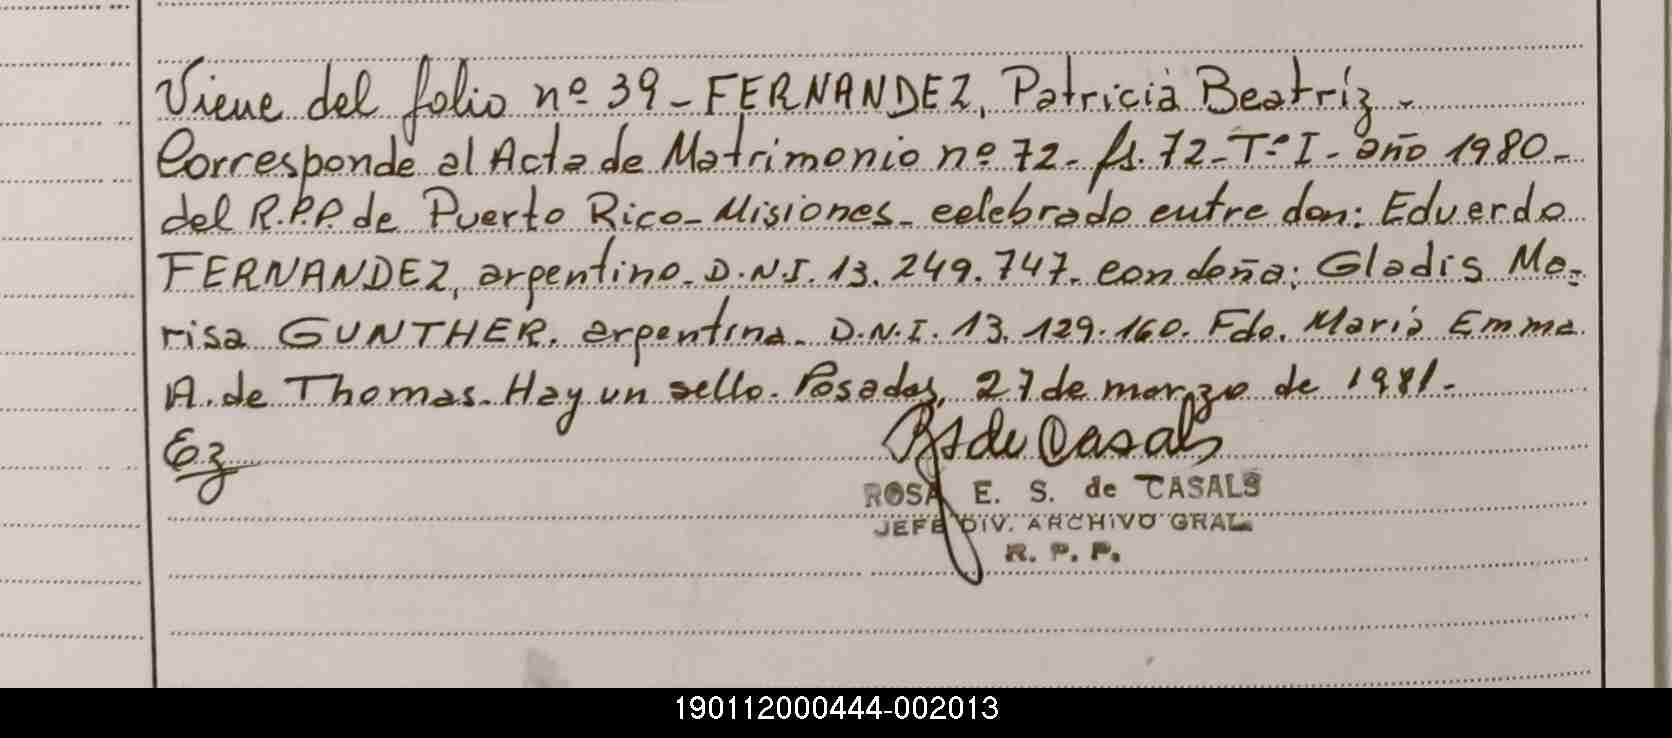 Viene del folio nº 39 - FERNANDEZ, Patricia Beatríz -
Corresponde al Acta de Matrimonio nº 72 - fs. 72 - Tº I - año 1980 -
del R.P.P. de Puerto Rico - Misiones - celebrado entre don: Eduardo
FERNANDEZ, argentino - D.N.I. 13.249.747 - con doña: Gladis Ma-
risa GUNTHER, argentina - D.N.I. 13.129.160. Fdo. María Emma
A. de Thomas - Hay un sello - Posadas, 27 de marzo de 1981 -
Ez
ROSA E. S. de CASALS
JEFE DIV. ARCHIVO GRAL.
R. P. P.
190112000444-002013